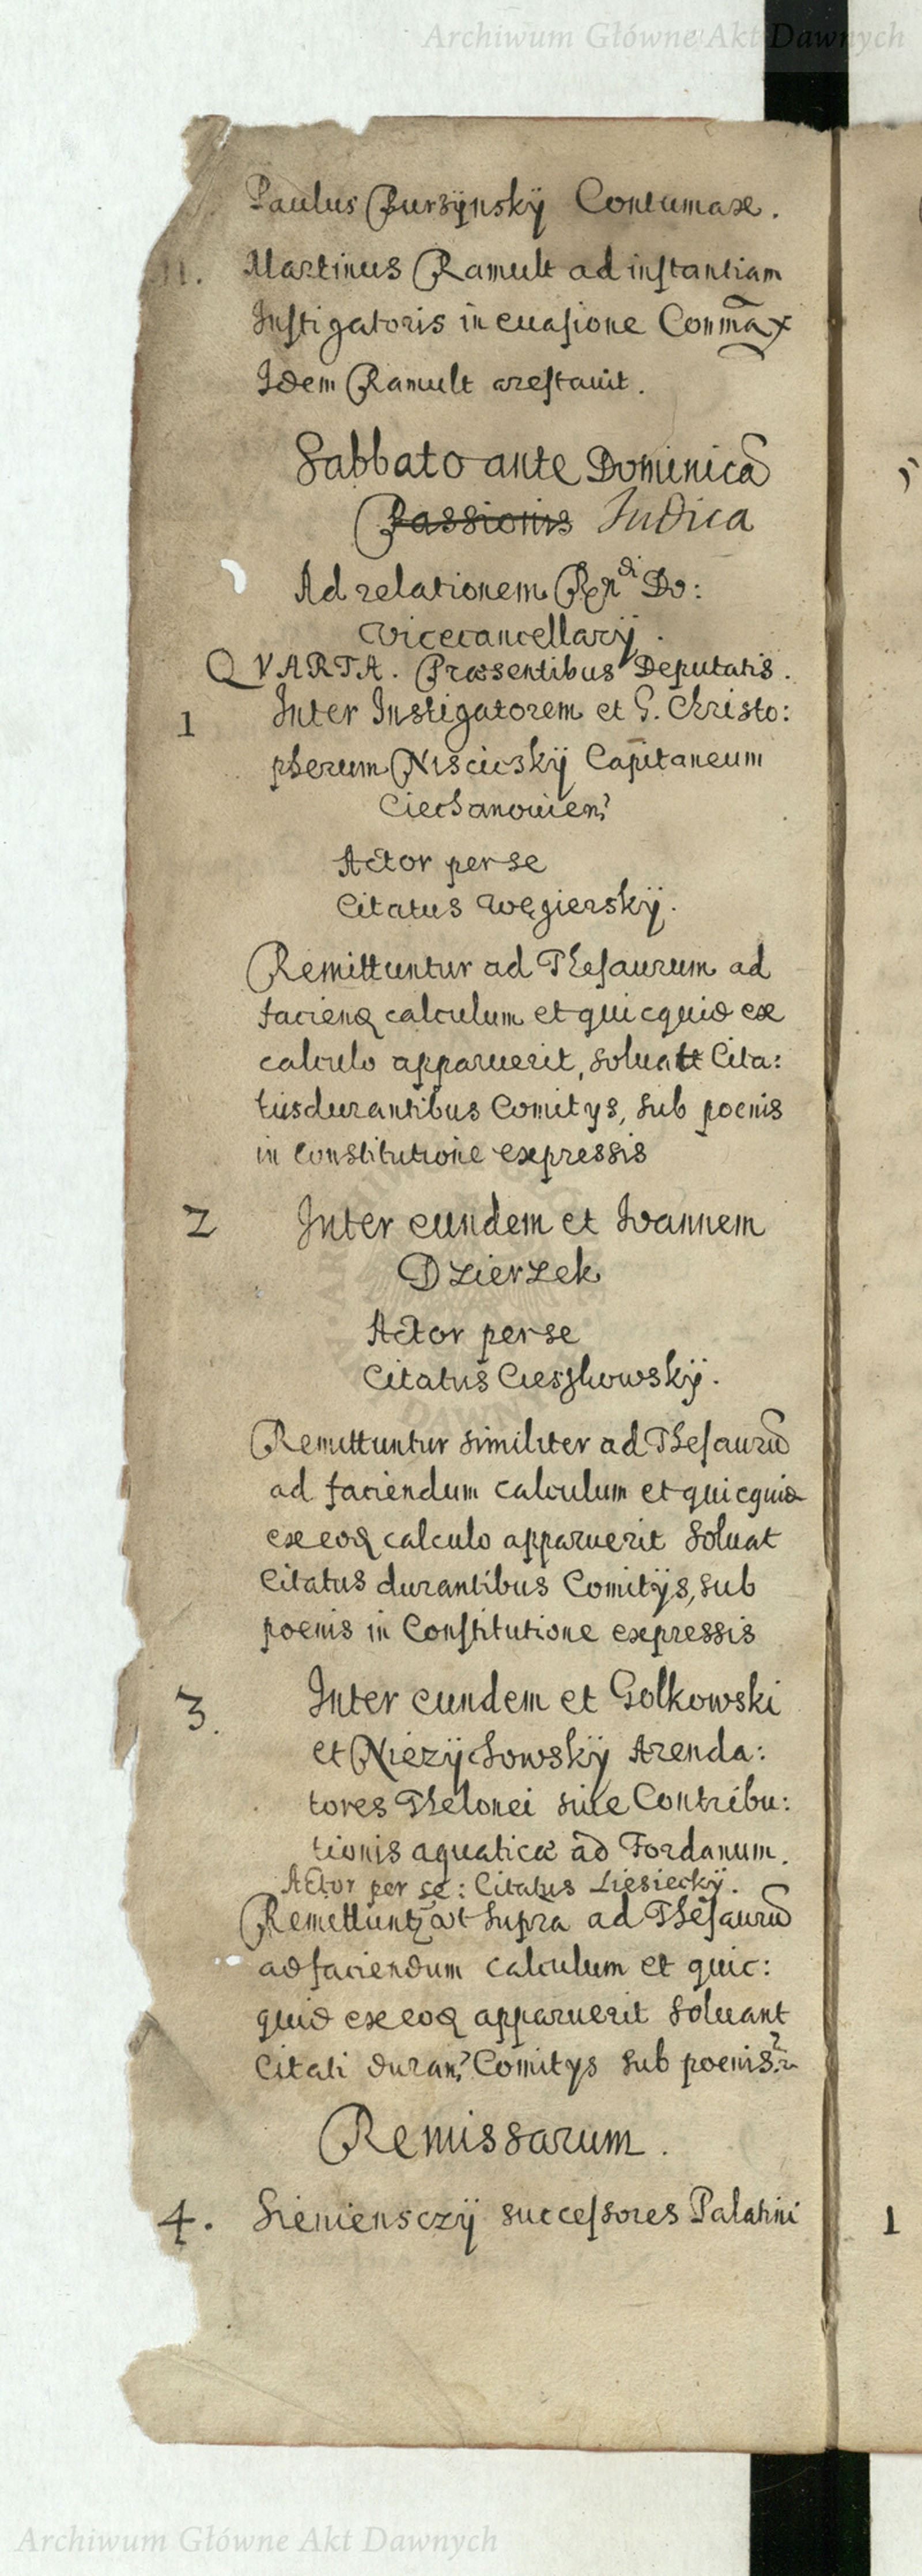 Archiwum Główne Akt Dawnych
Paulus Bursÿnskÿ Contumax.
11. Martinus Ramult ad instantiam
Instigatoris in euasione Conmax
Idem Ramult arestauit.
Sabbato ante Dominicã
Passionis Iudica
Ad relationem Rndi Do:
Vicecancellarÿ.
QVARTA. Præsentibus Deputatis.
1 Inter Instigatorem et G. Christo:
pherum Niscicskÿ Capitaneum
Ciechanouien
Actor per se
Citatus Węgierskÿ.
Remittuntur ad Thesaurum ad
faciend calculum et quicquid ex
calculo apparuerit, soluat Cita:
tus durantibus Comitys, sub poenis
in constitutione expressis
2 Inter eundem et Ioannem
Dzierzek
Actor per se
Citatus Cieszkowskÿ.
Remittuntur similiter ad Thesaurũ
ad faciendum calculum et quicquid
ex eod calculo apparuerit soluat
Citatus durantibus Comitÿs, sub
poenis in Constitutione expressis
3. Inter eundem et Golkowski
et Niezÿchowskÿ Arenda:
tores Thelonei siue Contribu:
tionis aquaticæ ad Fordanum.
Actor per se: Citatus Liesieckÿ.
Remittunt ut supra ad Thesaurũ
ad faciendum calculum et quic:
quid ex eod apparuerit soluant
Citati duran Comitys sub poenis
Remissarum.
4. Sieniensczÿ successores Palatini
1
Archiwum Główne Akt Dawnych